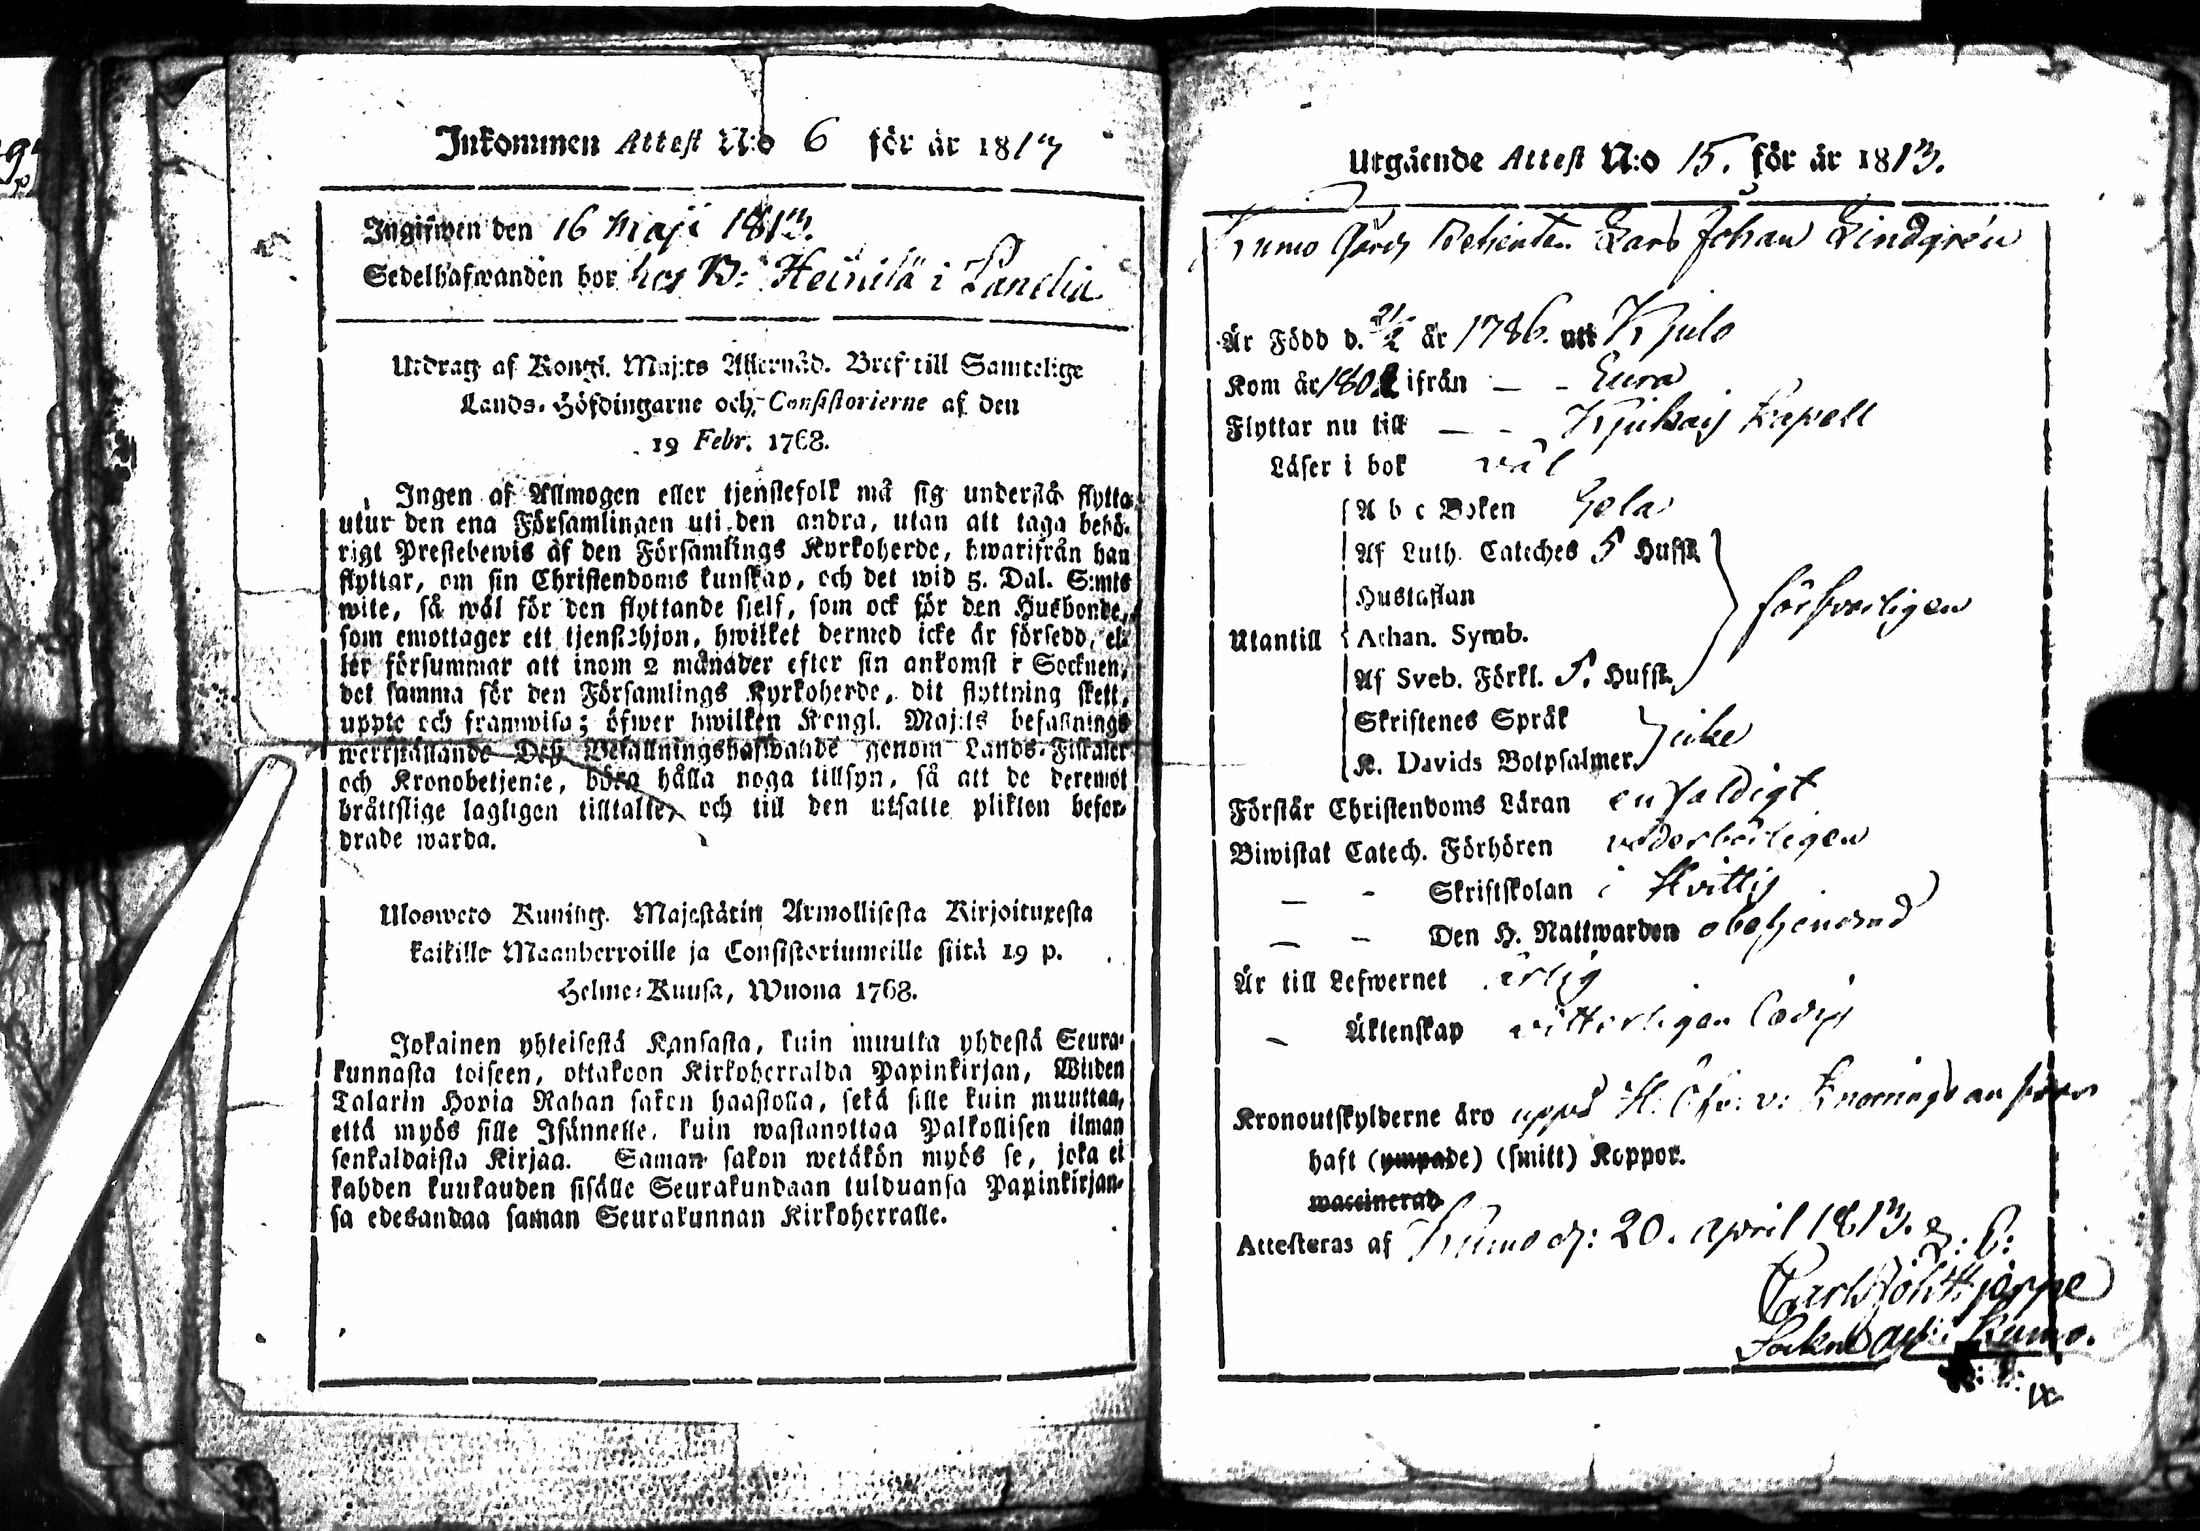 Inkommen Attest N:o 6 för år 1813
Ingifwen den 16 Maji 1813.
Sedelhafwanden bor hos B: Heinilä i Panelia
Utdrag af Kongl. Maj:ts Allernåd. Bref till Samtelige
Lands-Höfdingarne och Consistorierne af den
19 Febr. 1768.
Ingen af Allmogen eller tjenstefolk må sig understå flytta
utur den ena Församlingen uti den andra, utan att taga behö-
rigt Prestebewis af den Församlings Kyrkoherde, hwarifrån han
flyttar, om sin Christendoms kunskap, och det wid 5. Dal. S:mts
wite, så wäl för den flyttande sielf, som ock för den Husbonde,
som emottager ett tjenstehjon, hwilket dermed icke är försedd, el-
ler försummar att inom 2 månader efter sin ankomst i Socknen,
det samma för den Församlings Kyrkoherde, dit flyttning skett,
uppte och framwisa; öfwer hwilken Kongl. Maj:ts befallnings
werkställande Deß Befallningshafwande genom Lands-Fiskaler
och Kronobetjente, böra hålla noga tillsyn, så att de deremot
bråttslige lagligen tilltalte, och till den utsatte plikten befor-
drade warda.
Uloswero Kuning. Majestätin Armollisesta Kirjoituxesta
kaikille Maanherroille ja Consistoriumeille siitä 19 p.
Helme-Kuusa, Wuona 1768.
Jokainen yhteisestä Kansasta, kuin muutta yhdestä Seura-
kunnasta toiseen, ottakoon Kirkoherralda Papinkirjan, Wiiden
Talarin Hopia Rahan sakon haastolla, sekä sille kuin muuttaa,
että myös sille Isännelle, kuin wastanottaa Palkollisen ilman
senkaldaista Kirjaa. Saman sakon wetäkön myös se, joka ei
kahden kuukauden sisälle Seurakundaan tulduansa Papinkirjan-
sa edesandaa saman Seurakunnan Kirkoherralle.
Utgående Attest N:o 15. för år 1813.
Kumo Gårds Betienten Lars Johan Lindgrén
Är Född d. 21/2 år 1786. utt Kjulo
Kom år 180 ifrån — - Eura
Flyttar nu till — - Kjukais Kapell
Läser i bok väl
A b c Boken Hela
Af Luth. Cateches 5 Hufst.
Hustaflan
försvarligen
Utantill Athan. Symb.
Af Sveb. Förkl. 5. Hufst.
Skriftenes Språk
K. Davids Botpsalmer. icke
Förstår Christendoms Läran enfaldigt
Biwistat Catech. Förhören vederbörligen
— - Skriftskolan i Hvittis
— - Den H. Nattwarden obehindrad
Är till Lefwernet ärlig
- Äktenskap vitterligen Ledig
Kronoutskylderne äro
haft (ympade) (smitt) Koppor.
waccinerad
Attesteras af Kumo d: 20. April 1813.
Kumo.